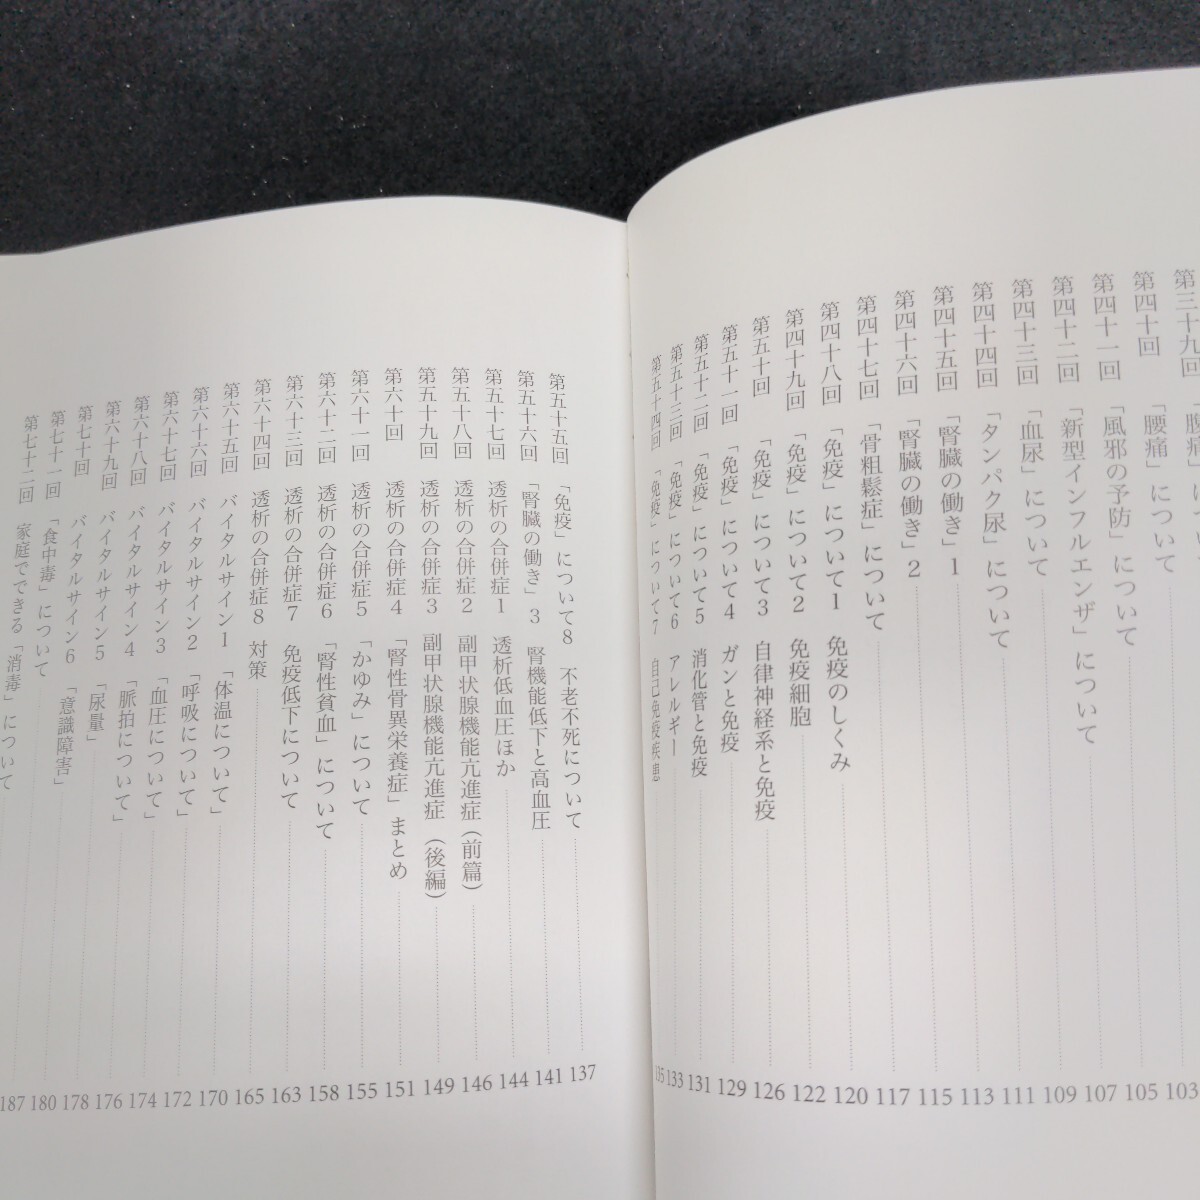 第三十九回
第四十回 「腰痛」について 103
第四十一回 「風邪の予防」について 105
第四十二回 「新型インフルエンザ」について 107
第四十三回 「血尿」について 109
第四十四回 「タンパク尿」について 111
第四十五回 「腎臓の働き」1 113
第四十六回 「腎臓の働き」2 115
第四十七回 「骨粗鬆症」について 117
第四十八回 「免疫」について1 免疫のしくみ 120
第四十九回 「免疫」について2 免疫細胞 122
第五十回 「免疫」について3 自律神経系と免疫 126
第五十一回 「免疫」について4 ガンと免疫 129
第五十二回 「免疫」について5 消化管と免疫 131
第五十三回 「免疫」について6 アレルギー 133
第五十四回 「免疫」について7 自己免疫疾患 135
第五十五回 「免疫」について8 不老不死について 137
第五十六回 「腎臓の働き」3 腎機能低下と高血圧 141
第五十七回 透析の合併症1 透析低血圧ほか 144
第五十八回 透析の合併症2 副甲状腺機能亢進症(前篇) 146
第五十九回 透析の合併症3 副甲状腺機能亢進症(後編) 149
第六十回 透析の合併症4 「腎性骨異栄養症」まとめ 151
第六十一回 透析の合併症5 「かゆみ」について 155
第六十二回 透析の合併症6 「腎性貧血」について 158
第六十三回 透析の合併症7 免疫低下について 163
第六十四回 透析の合併症8 対策 165
第六十五回 バイタルサイン1 「体温について」 170
第六十六回 バイタルサイン2 「呼吸について」 172
第六十七回 バイタルサイン3 「血圧について」 174
第六十八回 バイタルサイン4 「脈拍について」 176
第六十九回 バイタルサイン5 「尿量」 178
第七十回 バイタルサイン6 「意識障害」 180
第七十一回 「食中毒」について 187
第七十二回 家庭でできる「消毒」について